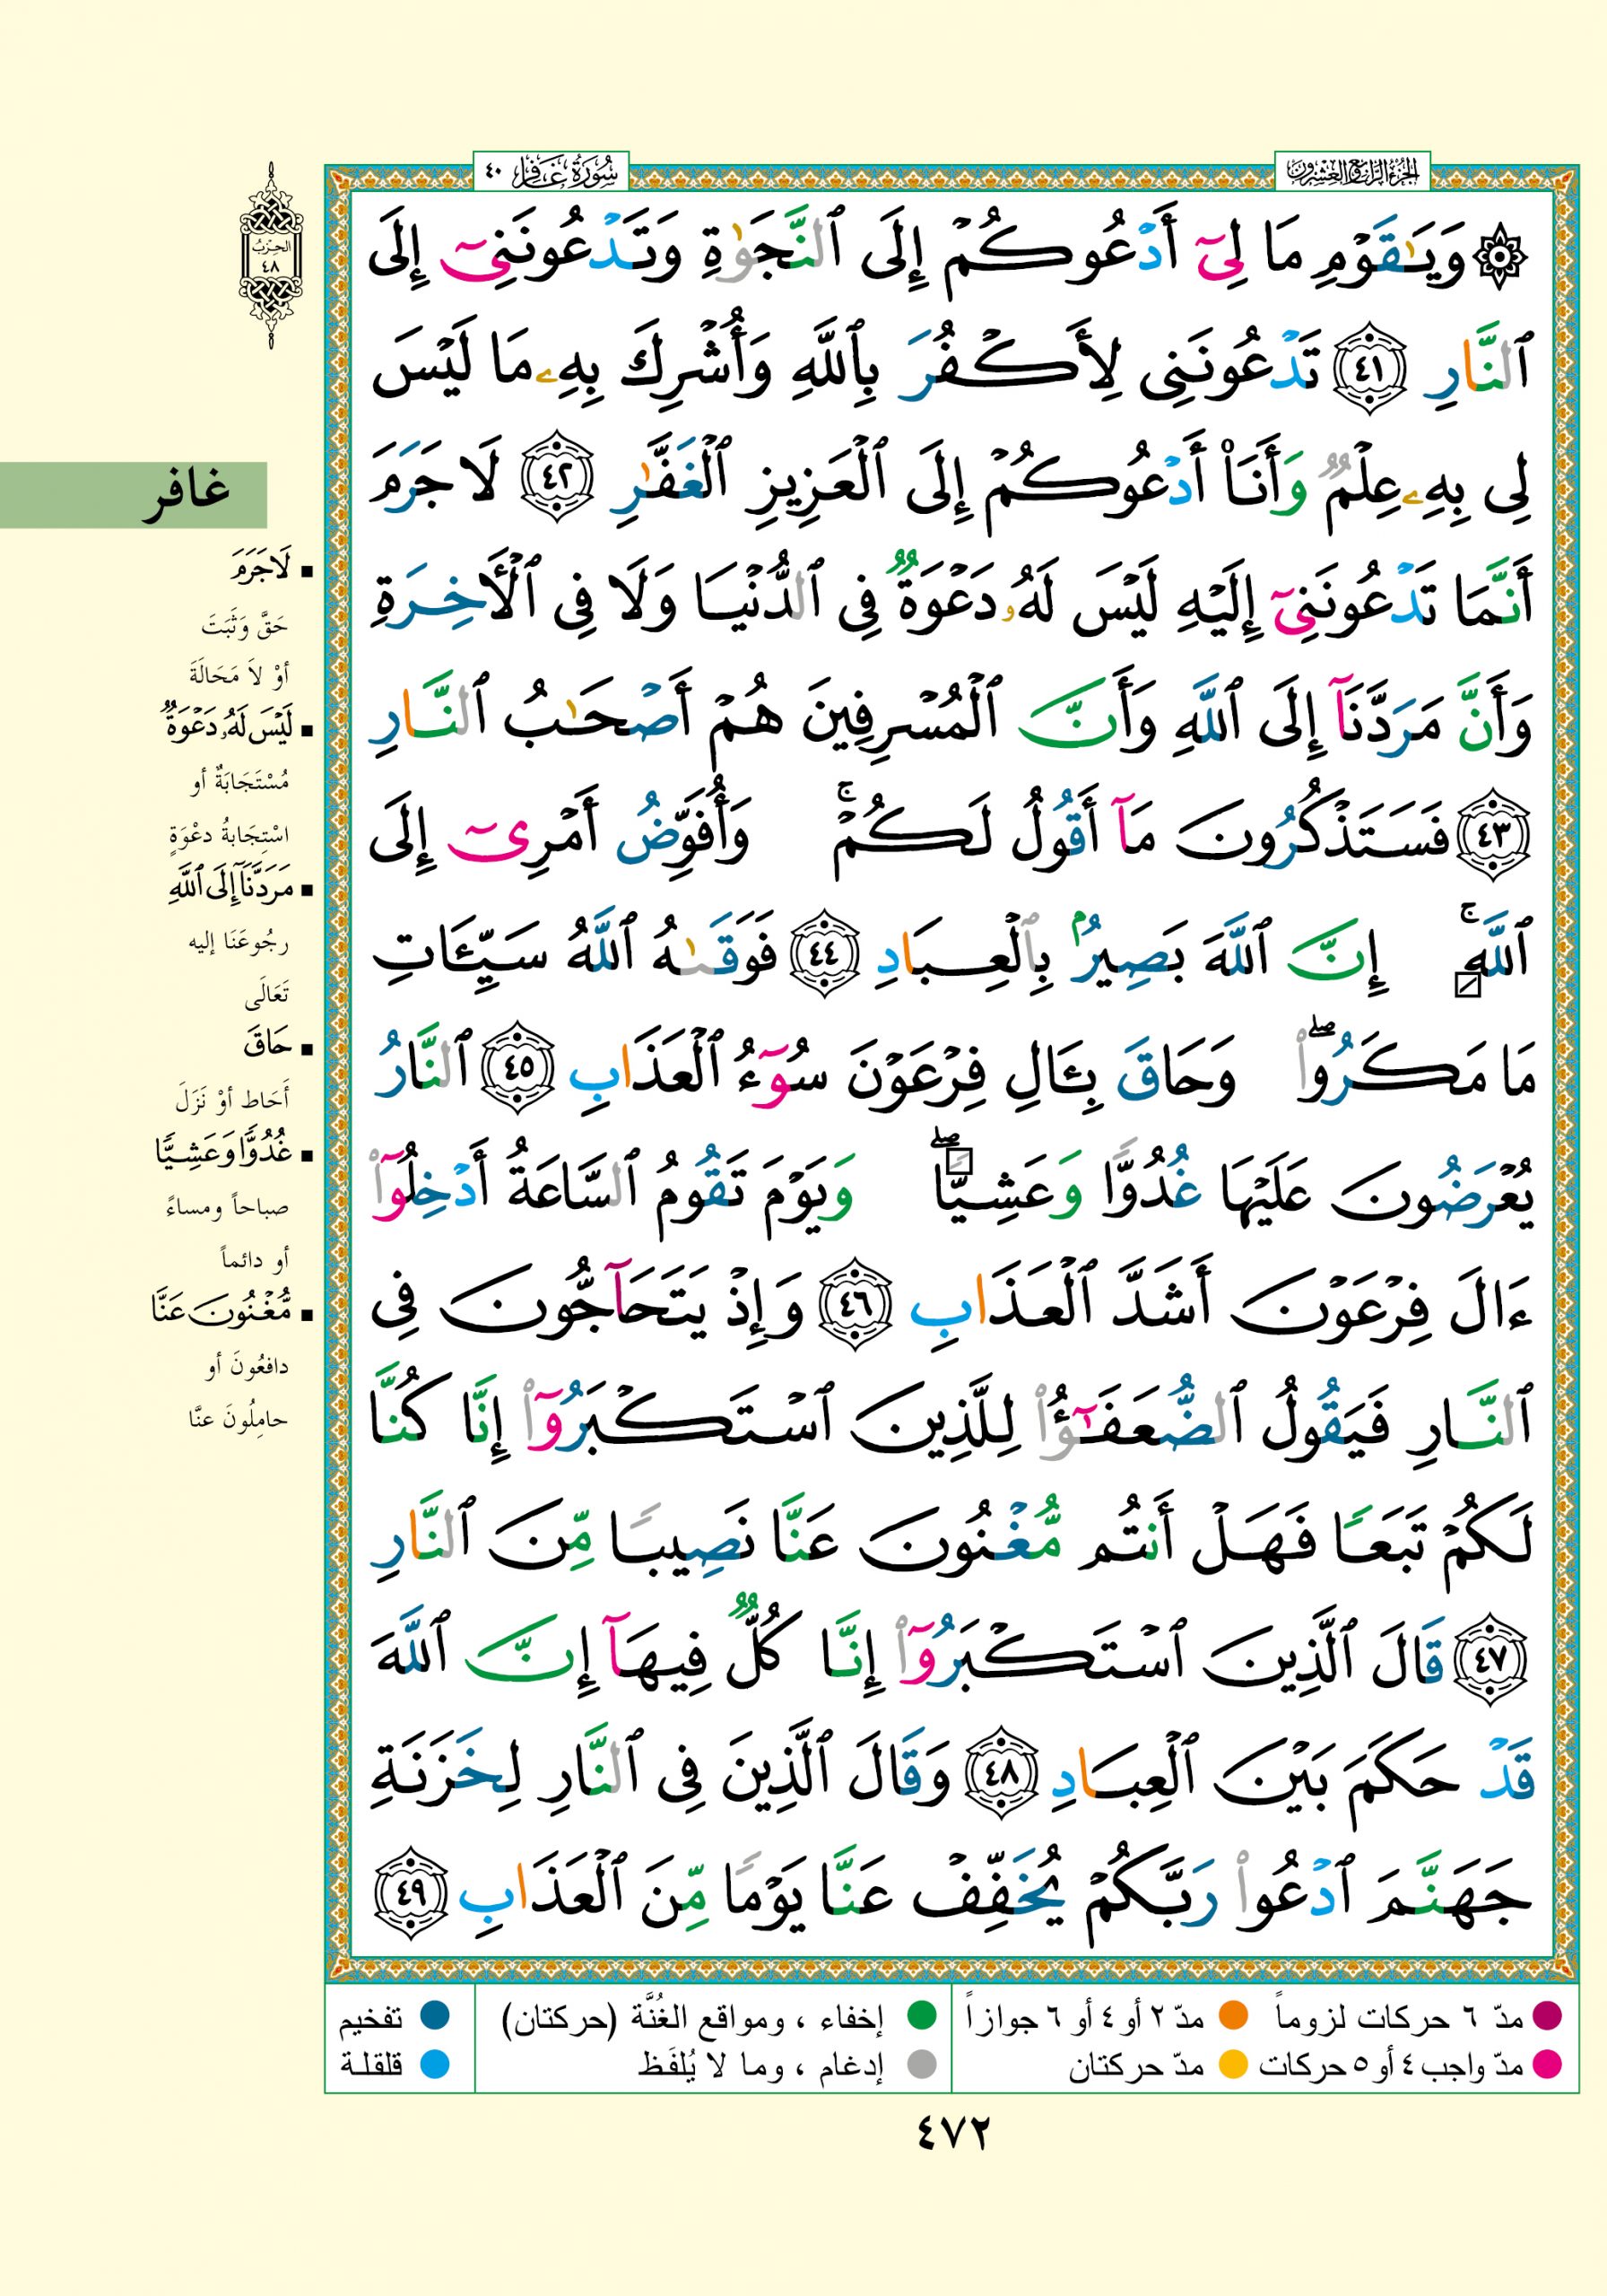 الجزء الرابع والعشرون
سُورَةُ غَافِرٍ ٤٠
الحِزْبُ
٤٨
۞ وَيَٰقَوْمِ مَا لِىٓ أَدْعُوكُمْ إِلَى ٱلنَّجَوٰةِ وَتَدْعُونَنِىٓ إِلَى
ٱلنَّارِ ٤١ تَدْعُونَنِى لِأَكْفُرَ بِٱللَّهِ وَأُشْرِكَ بِهِۦ مَا لَيْسَ
لِى بِهِۦ عِلْمٌ وَأَنَا۠ أَدْعُوكُمْ إِلَى ٱلْعَزِيزِ ٱلْغَفَّٰرِ ٤٢ لَا جَرَمَ
أَنَّمَا تَدْعُونَنِىٓ إِلَيْهِ لَيْسَ لَهُۥ دَعْوَةٌ فِى ٱلدُّنْيَا وَلَا فِى ٱلْأَخِرَةِ
وَأَنَّ مَرَدَّنَآ إِلَى ٱللَّهِ وَأَنَّ ٱلْمُسْرِفِينَ هُمْ أَصْحَٰبُ ٱلنَّارِ
٤٣ فَسَتَذْكُرُونَ مَآ أَقُولُ لَكُمْ ۚ وَأُفَوِّضُ أَمْرِىٓ إِلَى
ٱللَّهِ ۚ إِنَّ ٱللَّهَ بَصِيرٌۢ بِٱلْعِبَادِ ٤٤ فَوَقَىٰهُ ٱللَّهُ سَيِّـَٔاتِ
مَا مَكَرُوا۟ ۖ وَحَاقَ بِـَٔالِ فِرْعَوْنَ سُوٓءُ ٱلْعَذَابِ ٤٥ ٱلنَّارُ
يُعْرَضُونَ عَلَيْهَا غُدُوًّا وَعَشِيًّا ۖ وَيَوْمَ تَقُومُ ٱلسَّاعَةُ أَدْخِلُوٓا۟
ءَالَ فِرْعَوْنَ أَشَدَّ ٱلْعَذَابِ ٤٦ وَإِذْ يَتَحَآجُّونَ فِى
ٱلنَّارِ فَيَقُولُ ٱلضُّعَفَٰٓؤُا۟ لِلَّذِينَ ٱسْتَكْبَرُوٓا۟ إِنَّا كُنَّا
لَكُمْ تَبَعًا فَهَلْ أَنتُم مُّغْنُونَ عَنَّا نَصِيبًا مِّنَ ٱلنَّارِ
٤٧ قَالَ ٱلَّذِينَ ٱسْتَكْبَرُوٓا۟ إِنَّا كُلٌّ فِيهَآ إِنَّ ٱللَّهَ
قَدْ حَكَمَ بَيْنَ ٱلْعِبَادِ ٤٨ وَقَالَ ٱلَّذِينَ فِى ٱلنَّارِ لِخَزَنَةِ
جَهَنَّمَ ٱدْعُوا۟ رَبَّكُمْ يُخَفِّفْ عَنَّا يَوْمًا مِّنَ ٱلْعَذَابِ ٤٩
غافر
▪ لَا جَرَمَ
حَقَّ وَثَبَتَ
أوْ لاَ مَحَالَةَ
▪ لَيْسَ لَهُۥ دَعْوَةٌ
مُسْتَجَابَةٌ أو
اسْتِجَابةُ دعْوَةٍ
▪ مَرَدَّنَآ إِلَى ٱللَّهِ
رجُوعَنَا إليه
تَعَالَى
▪ حَاقَ
أَحَاط أوْ نَزَلَ
▪ غُدُوًّا وَعَشِيًّا
صباحاً ومساءً
أو دائماً
▪ مُّغْنُونَ عَنَّا
دافعُونَ أو
حامِلُونَ عنَّا
مدّ ٦ حركات لزوماً
مدّ ٢ أو ٤ أو ٦ جوازاً
إخفاء ، ومواقع الغُنَّة (حركتان)
تفخيم
مدّ واجب ٤ أو ٥ حركات
مدّ حركتان
إدغام ، وما لا يُلفَظ
قلقلة
٤٧٢